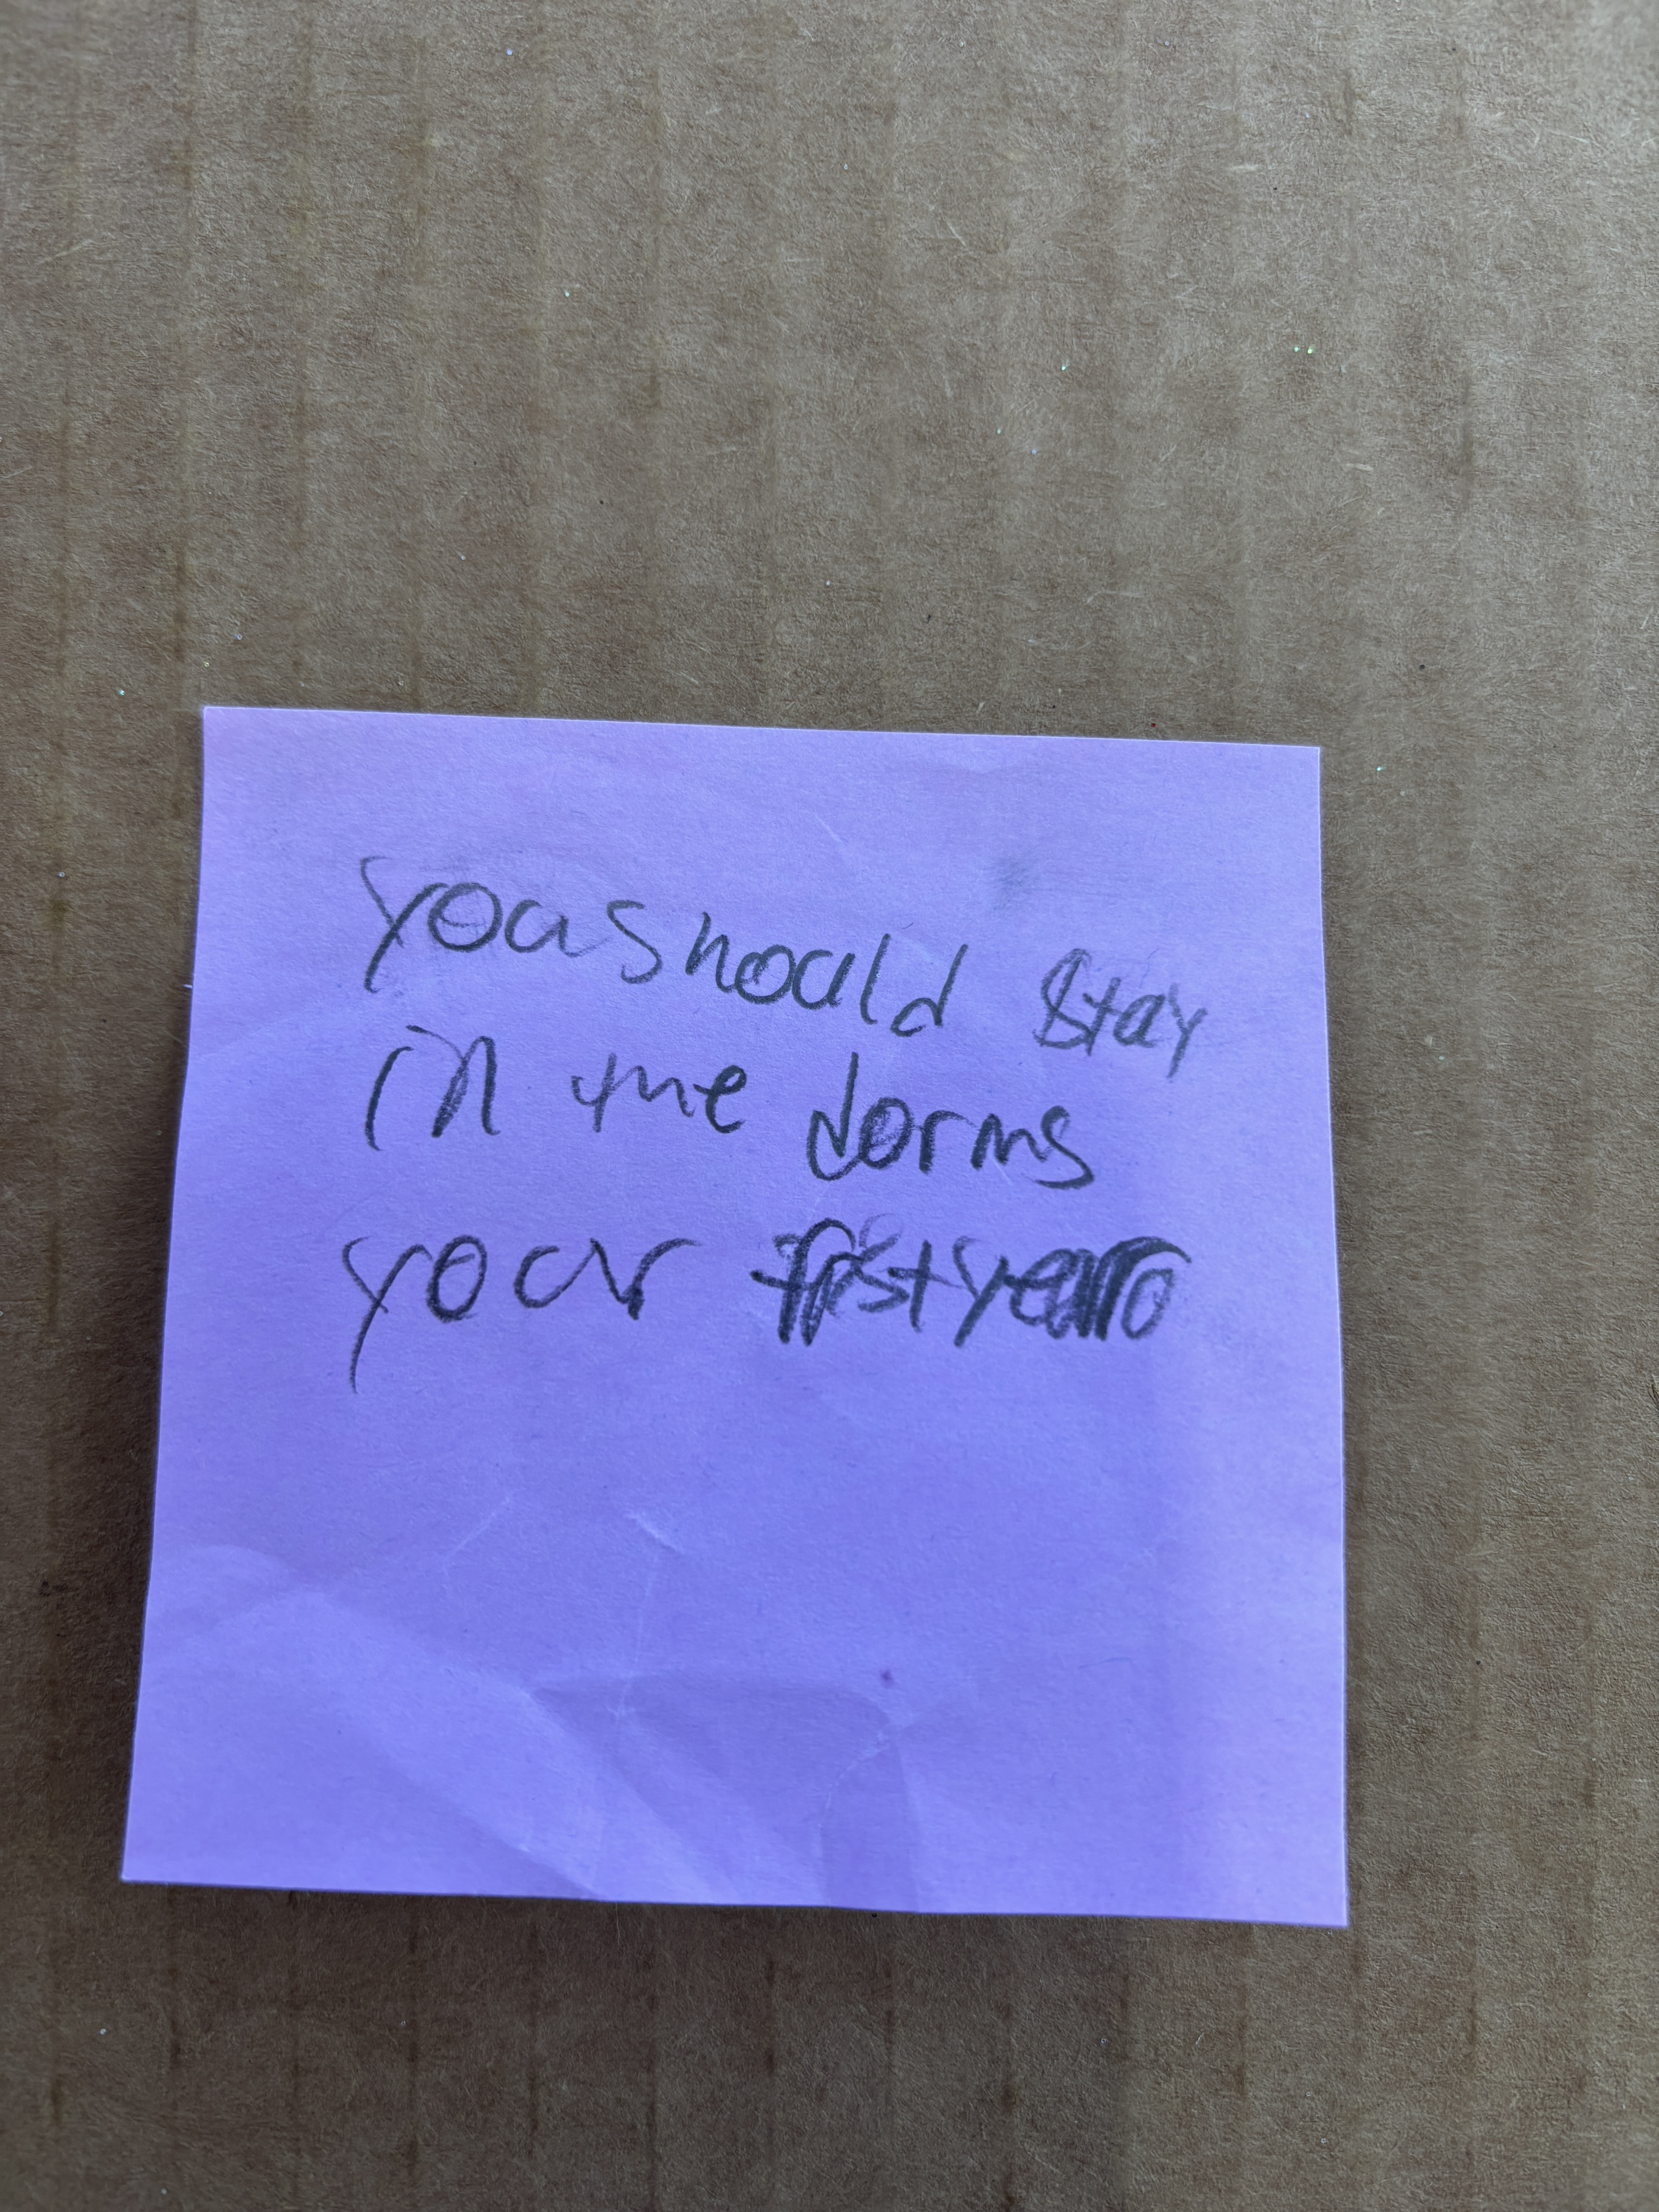 you should stay
in the dorms
your first year